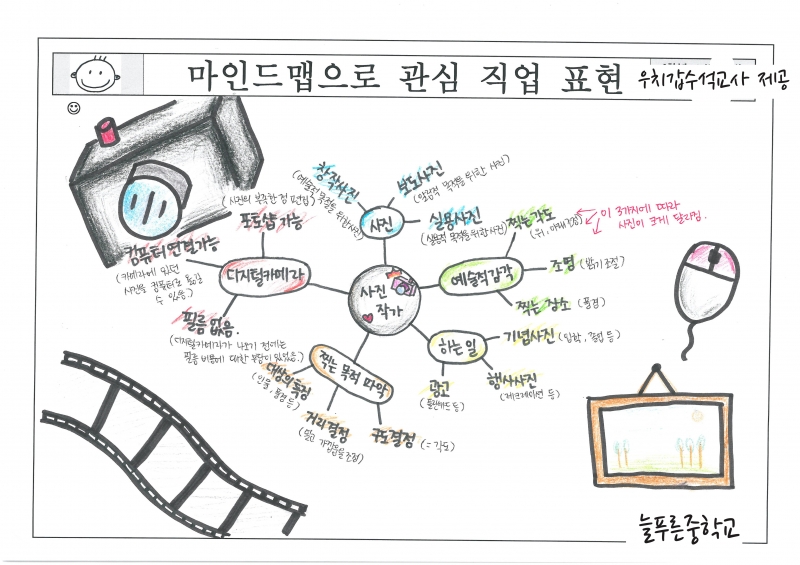 마인드맵으로 관심 직업 표현
우치갑수석교사 제공
사진
작가
사진
창작사진
(예술적 목적을 위한 사진)
보도사진
(알림적 목적을 위한 사진)
실용사진
(실용적 목적을 위한 사진)
예술적 감각
찍는 각도
(위, 아래 각도)
이 3가지에 따라
사진이 크게 달라짐.
조명 (밝기 조절)
찍는 장소 (풍경)
하는 일
기념사진 (입학, 졸업 등)
행사사진
광고
찍는 목적 파악
대상의 특징
(인물, 풍경 등)
거리 결정
(멀고 가까움을 조정)
구도결정 (= 각도)
디지털카메라
포토샵 가능
(사진의 부족한 점 보완)
컴퓨터 연결가능
(카메라에 있던
사진을 컴퓨터로 옮길
수 있음)
필름 없음.
(디지털카메라가 나오기 전에는
필름 비용에 대한 부담이 있었음.)
늘푸른중학교